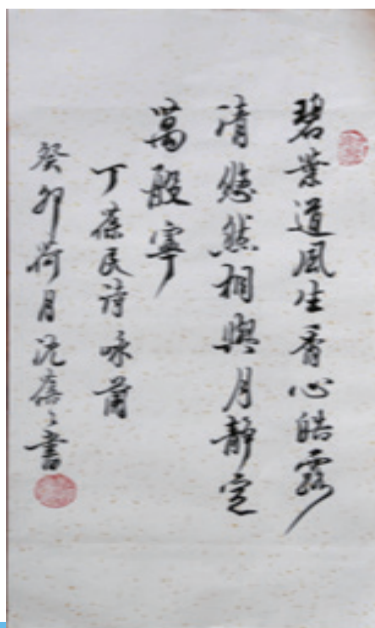 碧葉道風生香心皓露
清悠然相與月靜定
萬般寧
丁葆民诗咏
癸卯荷月沈書